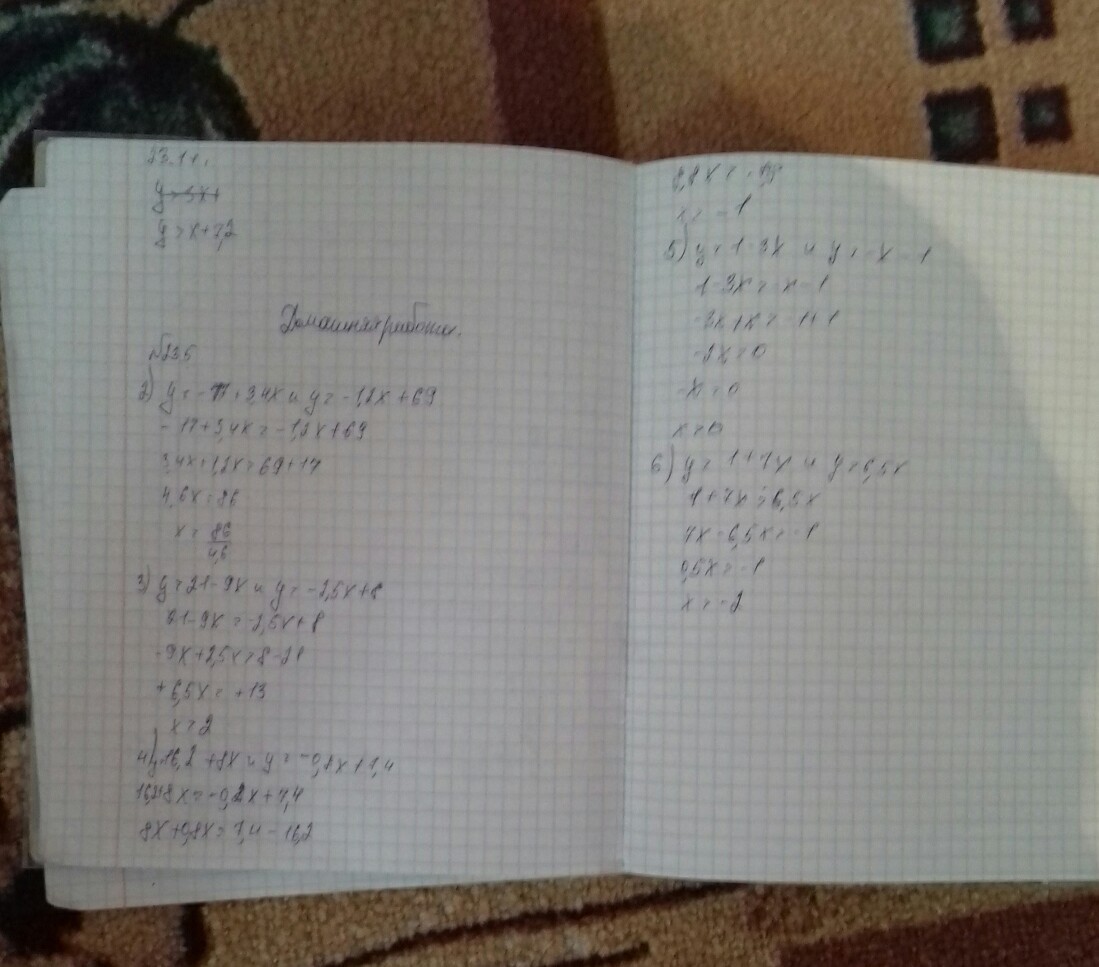 23.11.
y = x + 7,2
Домашняя работа.
№235
2) y = -17+3,4x и y = -1,2x + 69
-17+3,4x = -1,2x+69
3,4x+1,2x = 69+17
4,6x = 86
x = 86/4,6
3) y = 21-9x и y = -2,5x+8
21-9x = -2,5x+8
-9x+2,5x = 8-21
+6,5x = +13
x = 2
4) y=16,2 +8x и y = -0,8x+7,4
16,2+8x = -0,8x+7,4
8x+0,8x = 7,4-16,2
x = -1
5) y = 1-3x и y = -x-1
1-3x = x-1
-2x = 0
-x = 0
x = 0
6) y = 1+7x и y = 6,5x
1+7x = 6,5x
7x-6,5x = -1
0,5x = -1
x = -2